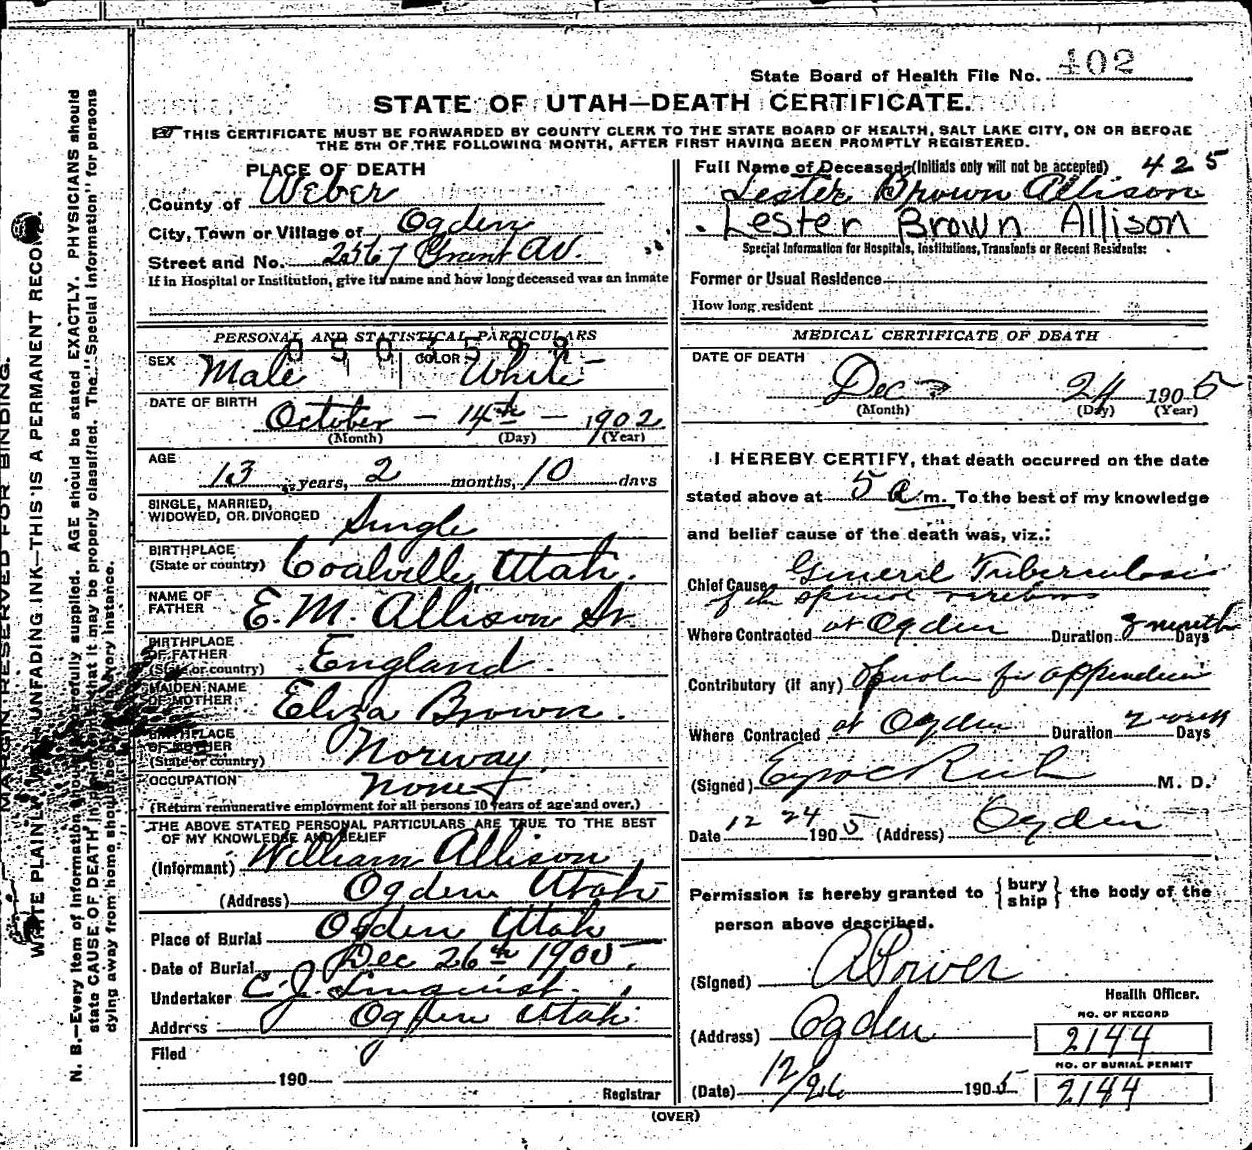 State Board of Health File No. 402
STATE OF UTAH—DEATH CERTIFICATE.
THIS CERTIFICATE MUST BE FORWARDED BY COUNTY CLERK TO THE STATE BOARD OF HEALTH, SALT LAKE CITY, ON OR BEFORE
THE 5TH OF THE FOLLOWING MONTH, AFTER FIRST HAVING BEEN PROMPTLY REGISTERED.
PLACE OF DEATH
County of Weber
City, Town or Village of Ogden
Street and No. 2567 Grant Av.
If in Hospital or Institution, give its name and how long deceased was an inmate
PERSONAL AND STATISTICAL PARTICULARS
0503598
SEX Male COLOR White
DATE OF BIRTH October - 14th - 1902
(Month) (Day) (Year)
AGE 13 years, 2 months, 10 days
SINGLE, MARRIED,
WIDOWED, OR DIVORCED Single
BIRTHPLACE
(State or country) Coalville Utah.
NAME OF
FATHER E. M. Allison Sr.
BIRTHPLACE
OF FATHER
(State or country) England.
MAIDEN NAME
OF MOTHER Eliza Brown.
BIRTHPLACE
OF MOTHER
(State or country) Norway
OCCUPATION None
(Return remunerative employment for all persons 10 years of age and over.)
THE ABOVE STATED PERSONAL PARTICULARS ARE TRUE TO THE BEST
OF MY KNOWLEDGE AND BELIEF
(Informant) William Allison
(Address) Ogden Utah
Place of Burial Ogden Utah
Date of Burial Dec 26th 1905.
Undertaker C. J. Linquist.
Address Ogden Utah
Filed
190
Registrar
Full Name of Deceased (Initials only will not be accepted) 425
Lester Brown Allison
Lester Brown Allison
Special Information for Hospitals, Institutions, Transients or Recent Residents:
Former or Usual Residence
How long resident
MEDICAL CERTIFICATE OF DEATH
DATE OF DEATH
Dec 24 1905
(Month) (Day) (Year)
I HEREBY CERTIFY, that death occurred on the date
stated above at 5 a m. To the best of my knowledge
and belief cause of the death was, viz.:
Chief Cause General Tuberculosis
of the spinal
Where Contracted at Ogden Duration 3 month Days
Contributory (if any) for appendicitis
Where Contracted at Ogden Duration 2 week Days
(Signed) M. D.
Date 12 24 1905 (Address) Ogden
Permission is hereby granted to {bury ship} the body of the
person above described.
(Signed) A Power
Health Officer.
(Address) Ogden
NO. OF RECORD
2144
NO. OF BURIAL PERMIT
(Date) 12/26 1905 2144
(OVER)
MARGIN RESERVED FOR BINDING.
WRITE PLAINLY WITH UNFADING INK—THIS IS A PERMANENT RECORD.
N. B.—Every item of information should be carefully supplied. AGE should be stated EXACTLY. PHYSICIANS should
state CAUSE OF DEATH in plain terms, that it may be properly classified. The "Special Information" for persons
dying away from home should be given in every instance.